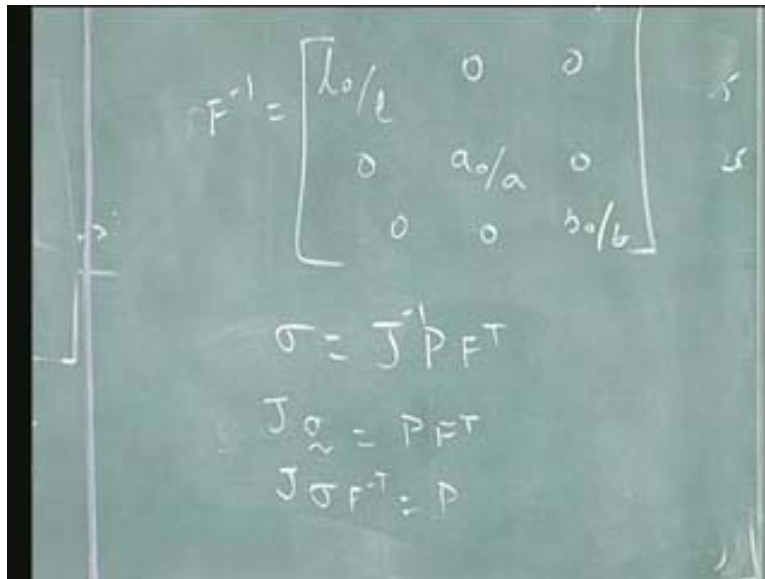 F⁻¹ = [ l₀/l 0 0
0 a₀/a 0
0 0 b₀/b ]
σ = J⁻¹ P Fᵀ
J σ̰ = P Fᵀ
J σ F⁻ᵀ = P